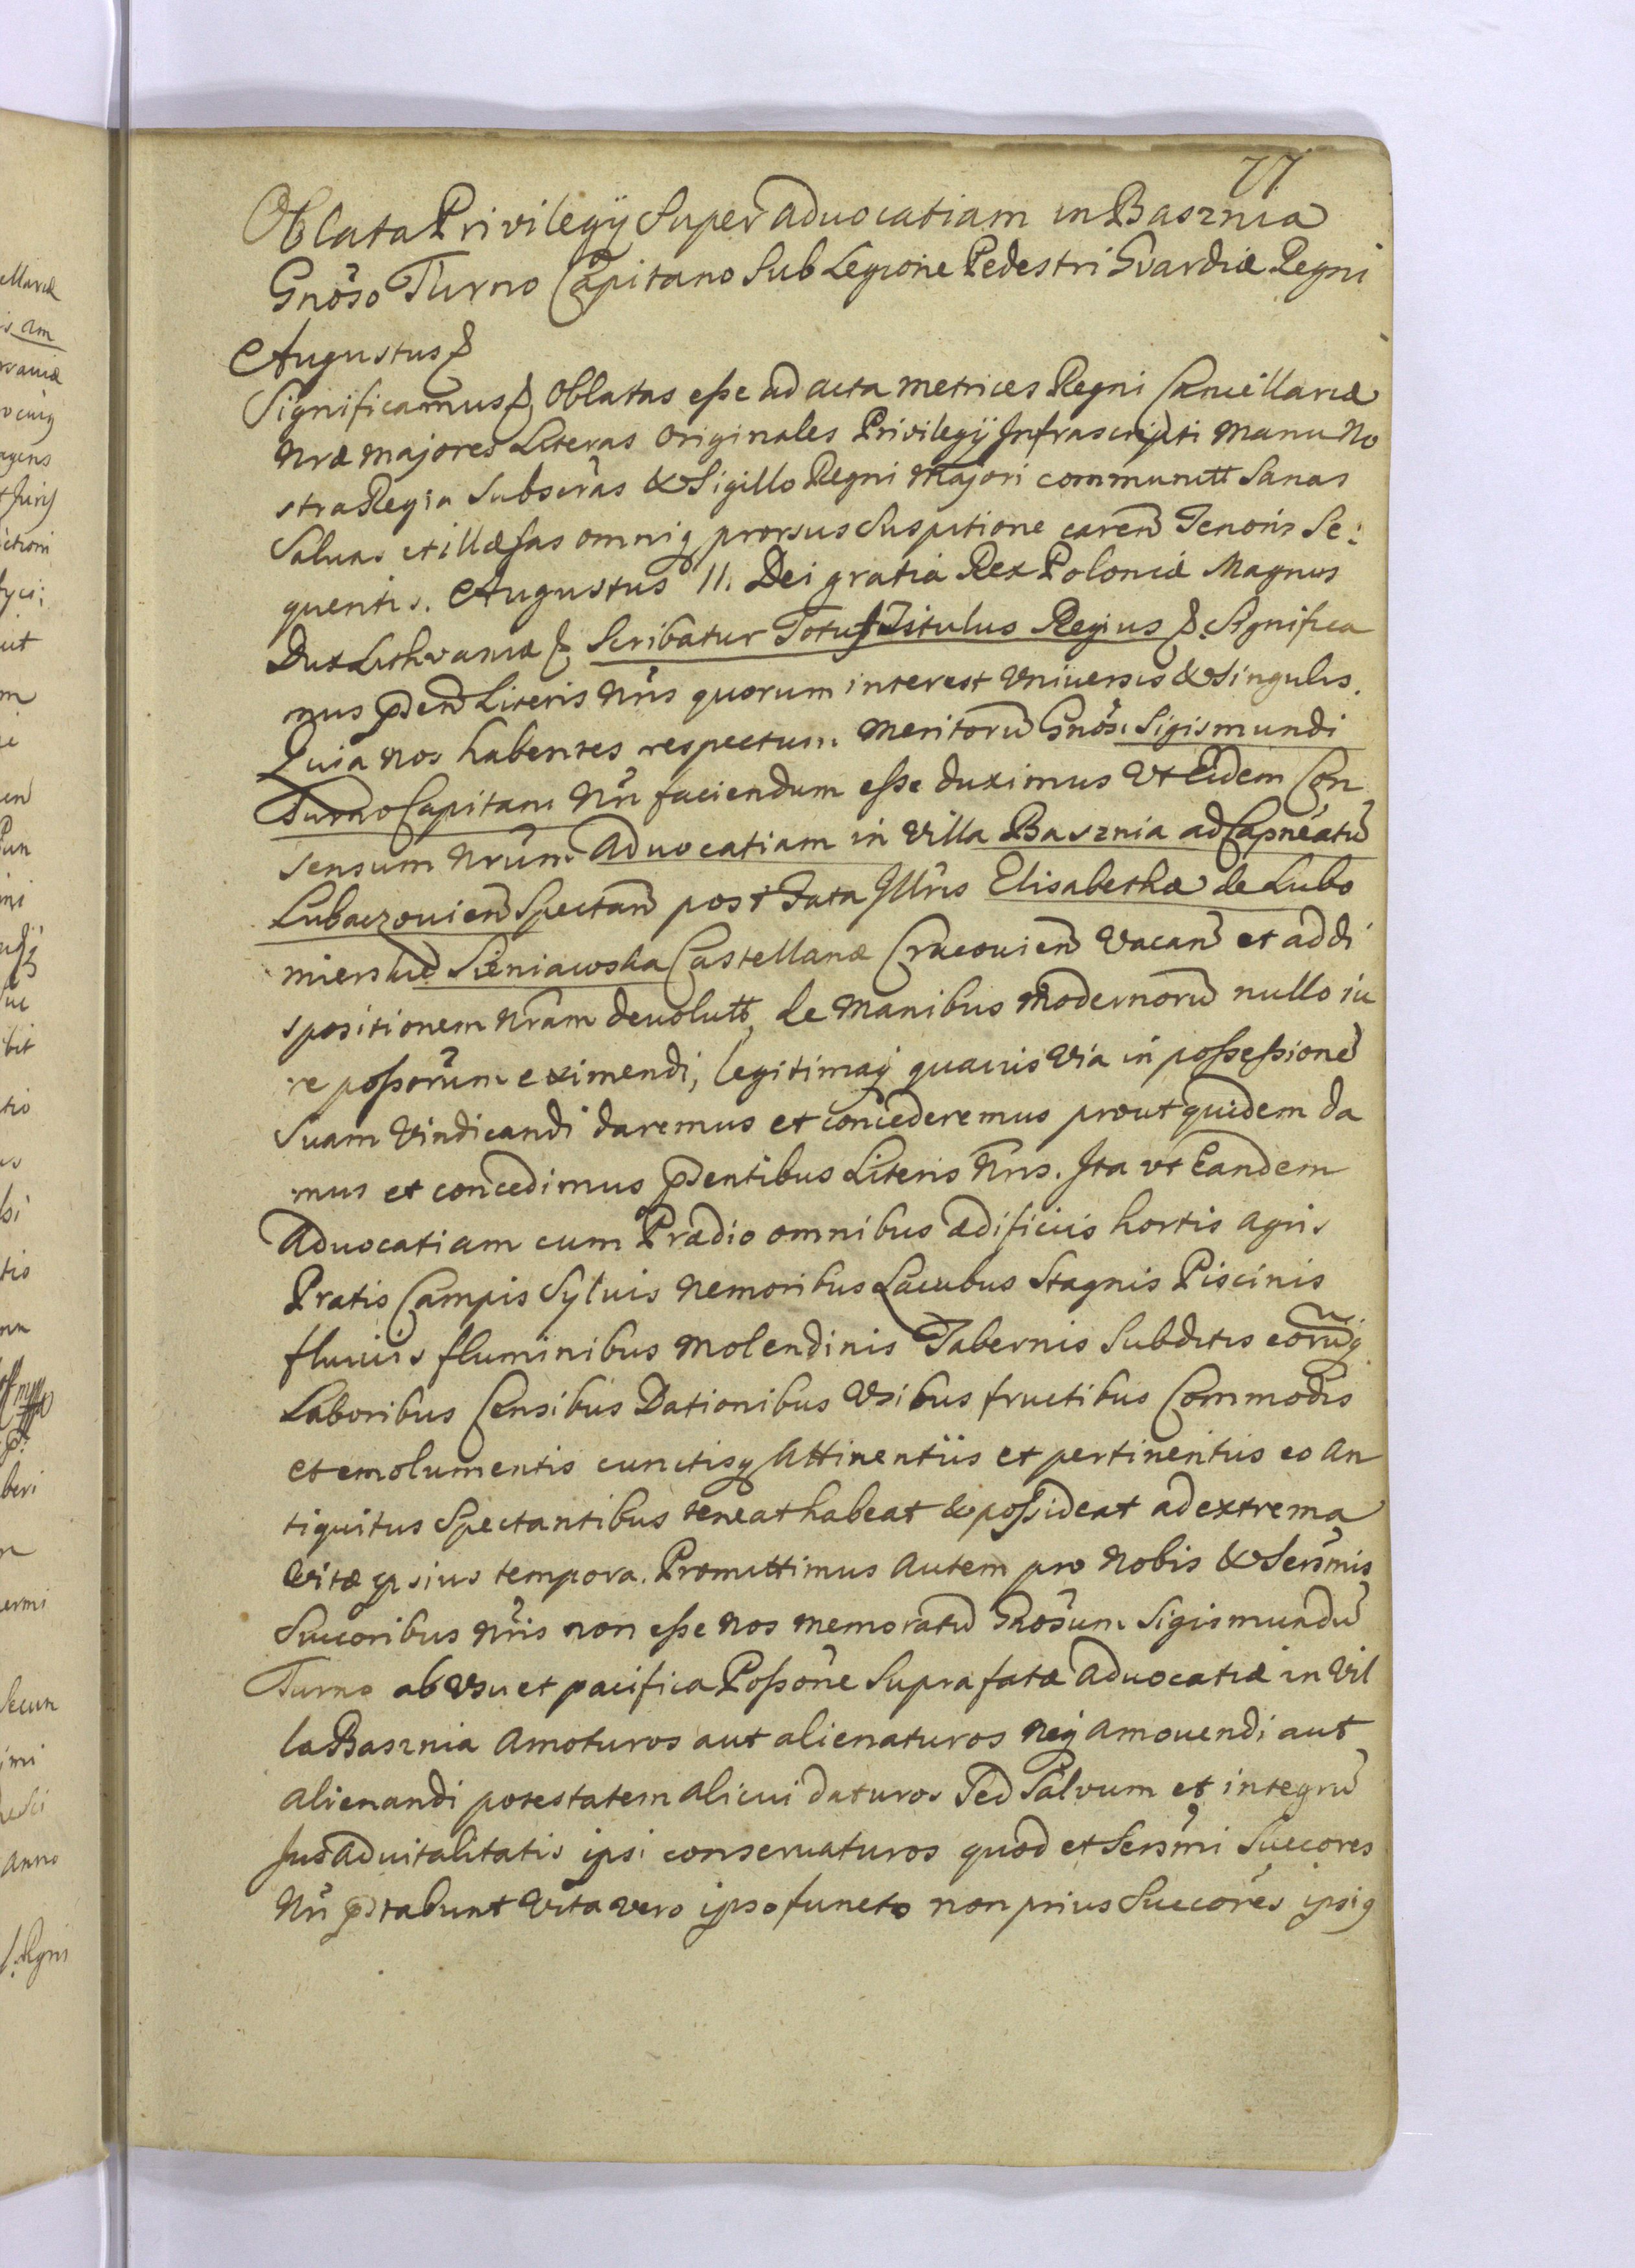 77
Oblata Privilegij Super Aduocatiam in Basznia
Gnoso Turno Capitano Sub Legione Pedestri Gvardiæ Regni
Augustus &
Significamus &, Oblatas eße ad acta metrices Regni Cancellariæ
Nræ majores Literas originales Privilegij Infrascripti manu No
stra Regia Subscras & Sigillo Regni Majori communitt Sanas
Saluas et illæsas omniq prorsus Suspitione caren Tenoris Se:
quentis. Augustus II. Dei gratia Rex Poloniæ Magnus
Dux Lithvaniæ & Scribatur Totus Titulus Regius &. Significa
mus pden Literis Nris quorum interest Vniuersis & Singulis.
Quia nos habentes respectum meritoru Gnosi Sigismundi
Turno Capitani Nri faciendum eße duximus Vt Eidem Con
sensum Nrum Aduocatiam in Villa Basznia ad Capneatu
Lubaczouien Spectan post Fata Illris Elisabethæ de Lubo
mierskie Sieniawska Castellanæ Cracouien Vacan et ad di
spositionem Nram deuolutt, de Manibus Modernoru nullo iu
re poßorum eximendi, legitimaq quauis Via in poßeßione
Suam Vindicandi daremus et concederemus prout quidem da
mus et concedimus pdentibus Literis Nris. Ita vt Eandem
Aduocatiam cum Prædio omnibus ædificiis hortis agris
Pratis Campis Syluis Nemoribus Lacubus Stagnis Piscinis
fluuiis fluminibus Molendinis Tabernis Subditis eoruq
Laboribus Censibus Dationibus Vsibus fructibus Commodis
et emolumentis cunctisq Attinentiis et pertinentiis eo an
tiquitus Spectantibus teneat habeat & poßideat ad extrema
Vitæ ipsius tempora. Promittimus Autem pro Nobis & Sersmis
Succoribus Nris non eße Nos memoratu Gnosum Sigismundu
Turno ab Vsu et pacifica Poßone Suprafatæ Aduocatiæ in Vil
la Basznia Amoturos aut alienaturos Neq amouendi aut
alienandi potestatem alicui daturos Sed Salvum et integru
Jus Aduitalitatis ipsi conseruaturos quod et Sersmi Succores
Nri pstabunt Vita vero ipso functo non prius Succores ipsiq